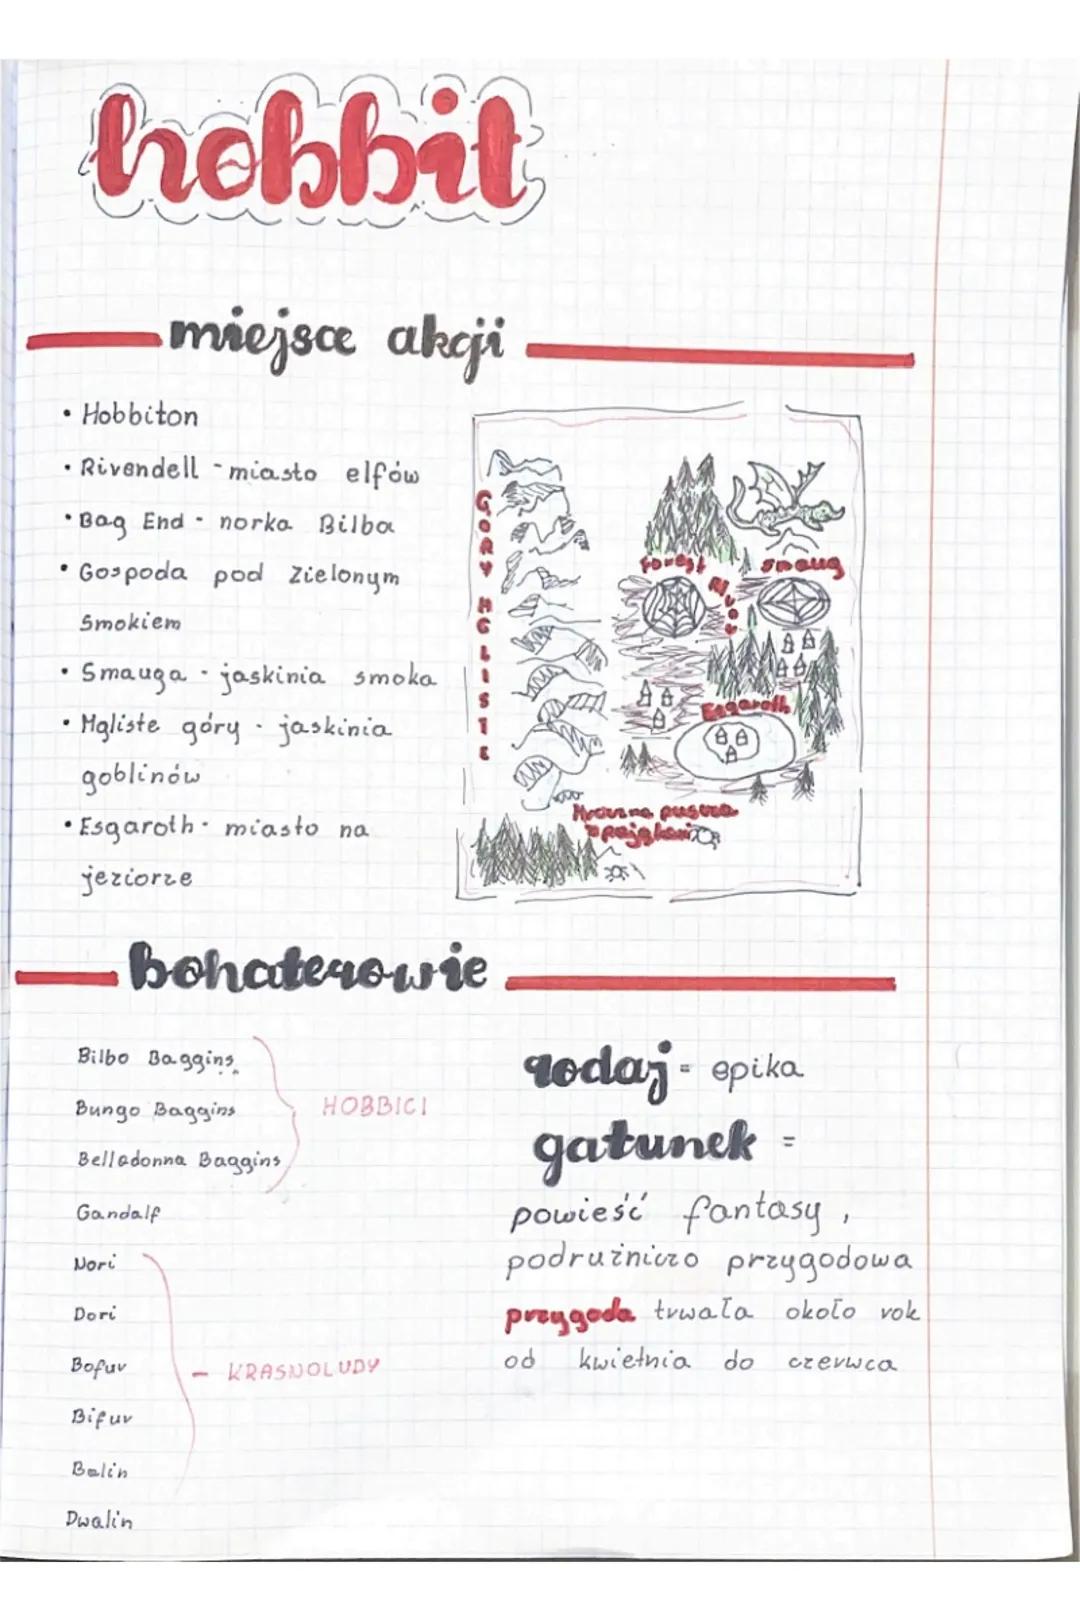 hobbit
miejsce akcji
• Hobbiton
• Rivendell - miasto elfów
• Bag End - norka Bilba
• Gospoda pod Zielonym
Smokiem
• Smauga - jaskinia smoka
• Mgliste góry - jaskinia
goblinów
• Esgaroth - miasto na
jeziorze
GÓRY MGLISTE
Forest
River
Smaug
Esgaroth
Mroczna puszcza
z pająkami
bohaterowie
Bilbo Baggins
Bungo Baggins
Belladonna Baggins
HOBBICI
Gandalf
Nori
Dori
Bofur
Bifur
Balin
Dwalin
- KRASNOLUDY
rodaj - epika
gatunek =
powieść fantasy,
podrużniczo przygodowa
przygoda trwała około rok
od kwietnia do czerwca